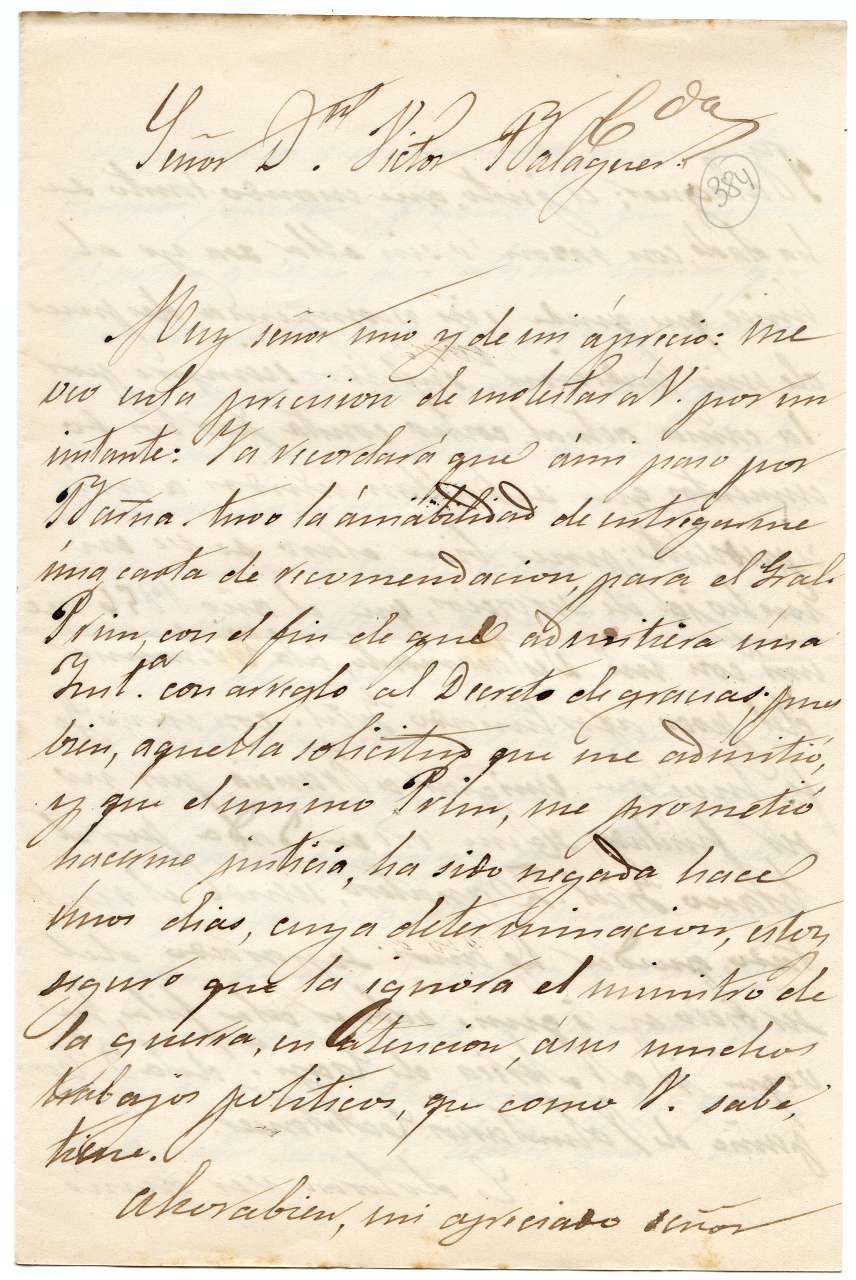 Cda
Señor Dn. Victor Balaguer.
384
Muy señor mio y de mi áprecio: me
veo enla precision de molestará V. por un
intante: Ya recordará que ámi paso por
Barna tuvo la ámabilidad de entregarme
úna carta de recomendacion, para el Gral.
Prim, con el fin de que admitiera úna
Inst.a con arreglo al Decreto de gracias; pues
bien, áquella solicitud que me admitió,
y que el mimo Prim, me prometió
hacerme justicia, ha sido negada hace
únos dias, cuya determinacion, estoy
seguro que la ignora el minitro de
la guerra, en átencion, ásus muchos
trabajos politicos, que como V. sabe,
tiene.
Ahorabien, mi apreciado señor